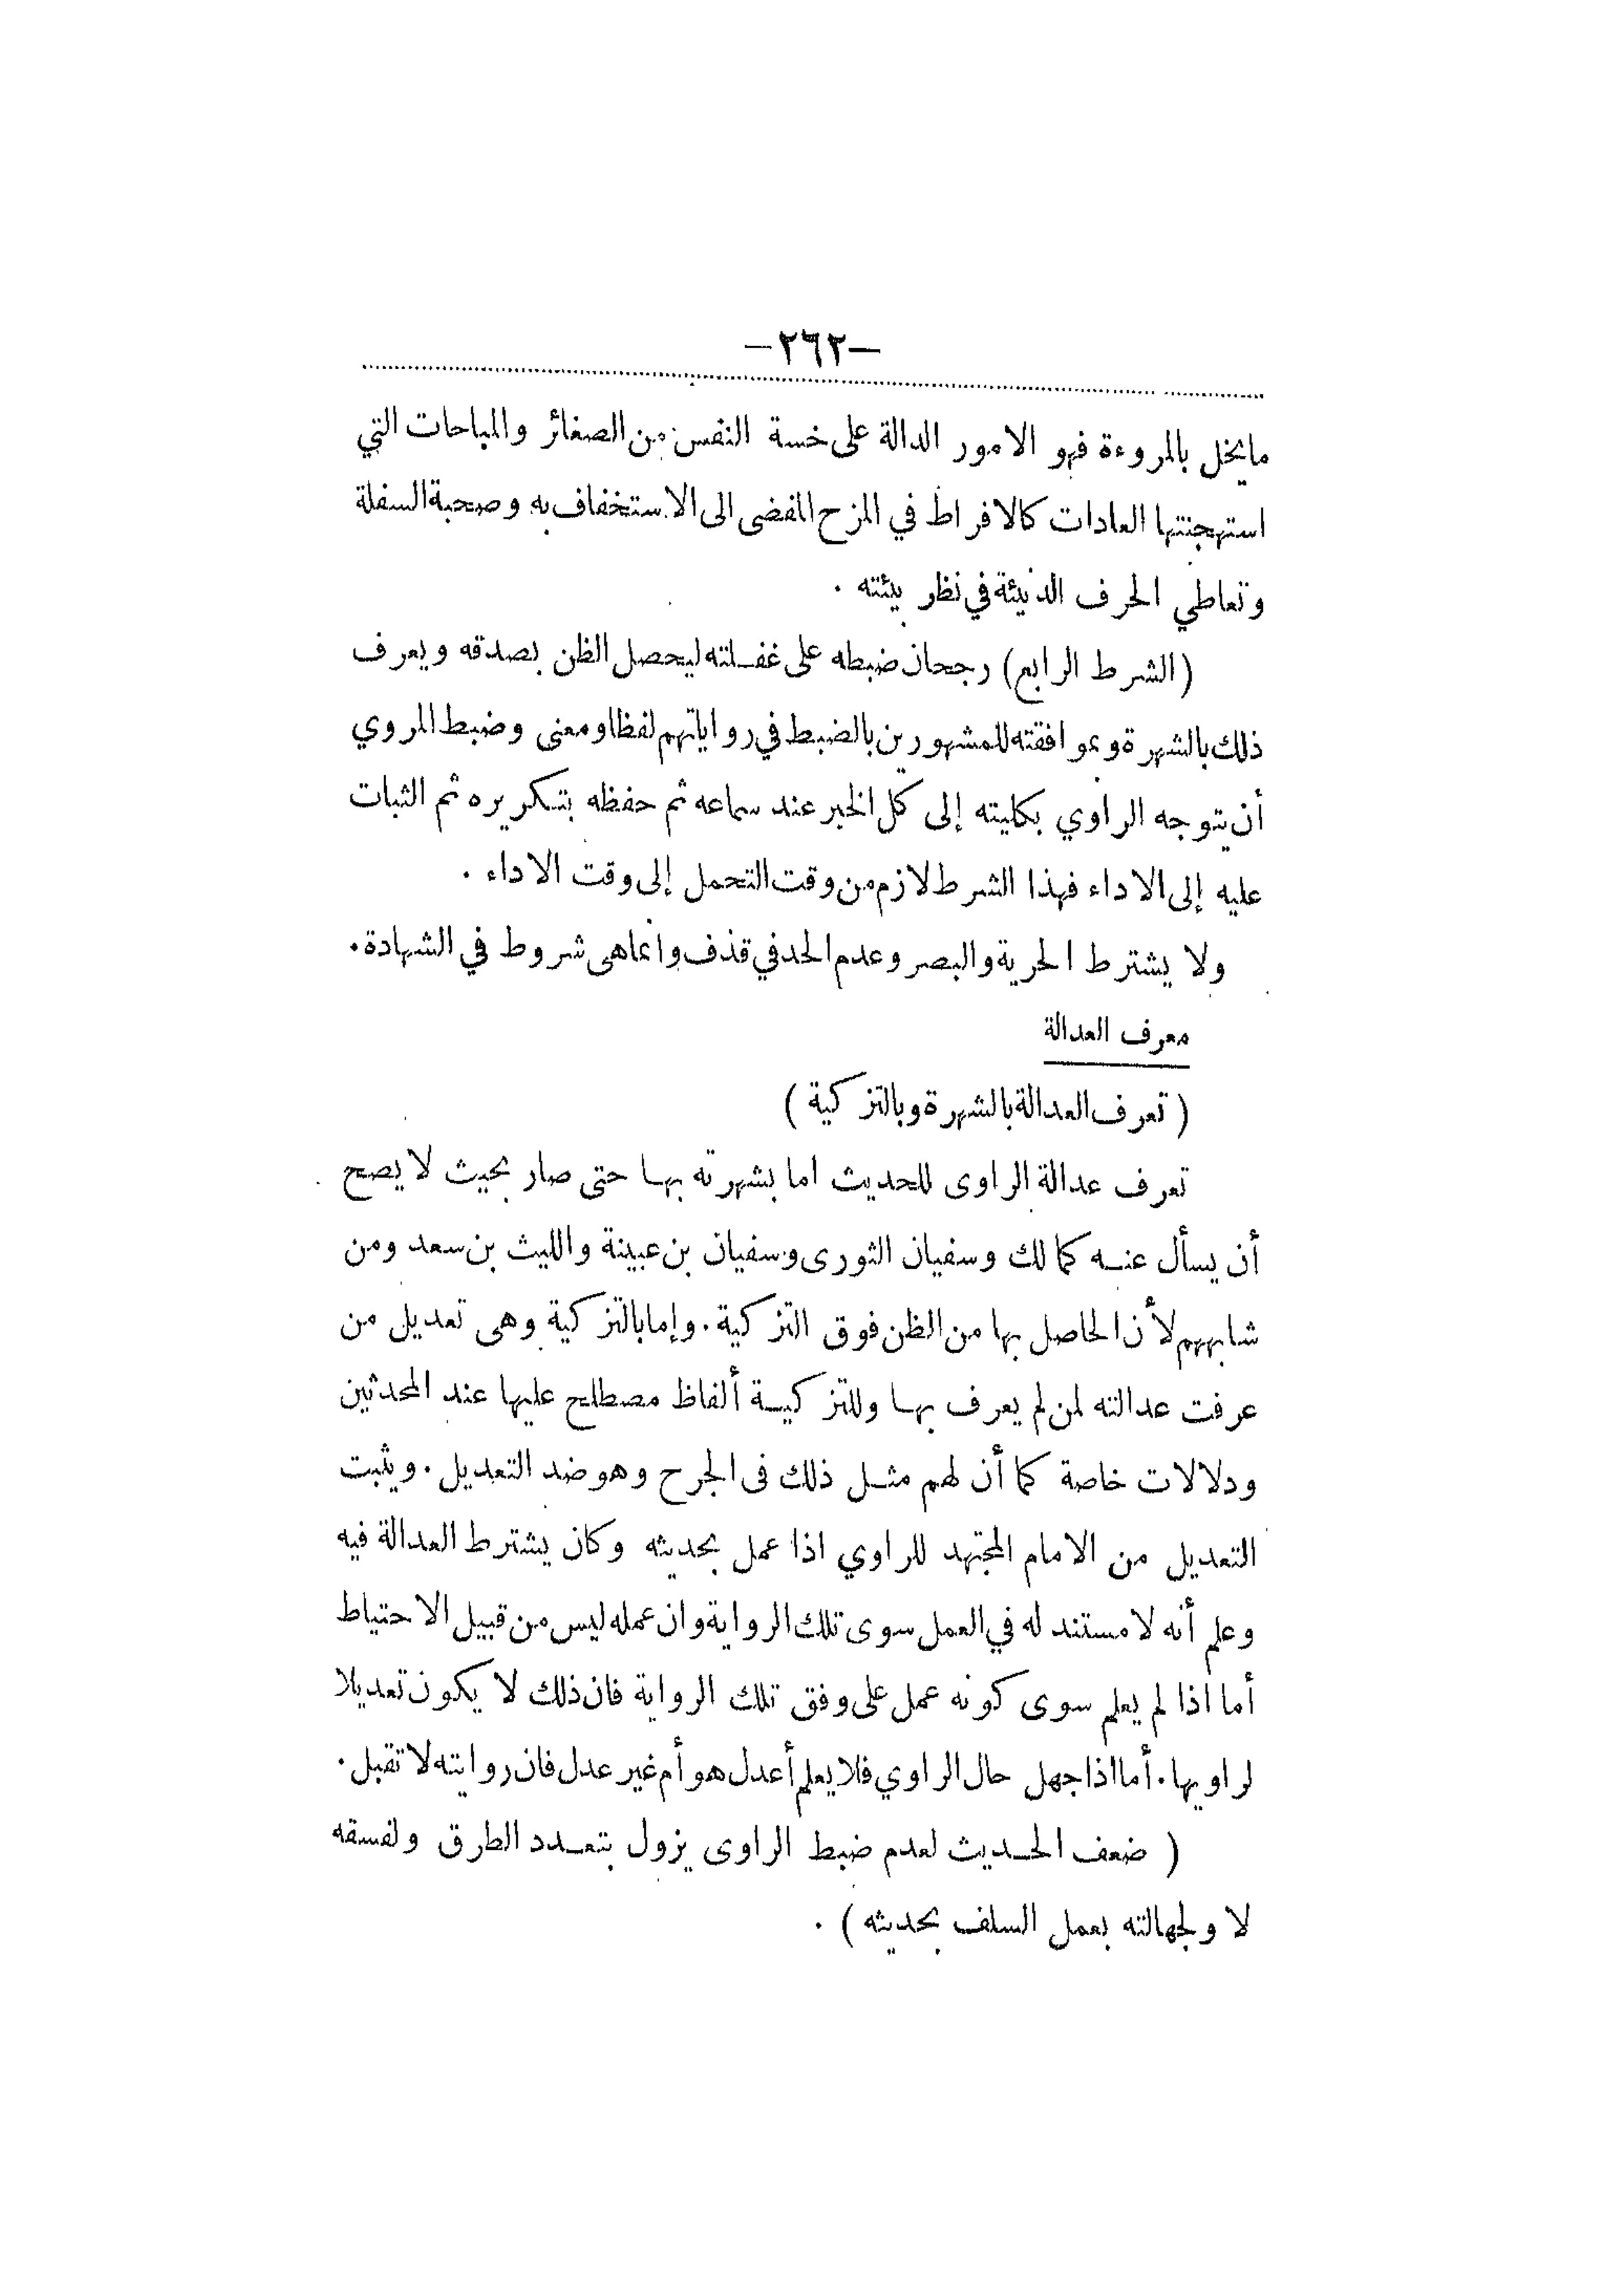 —٢٦٢—
ما يخل بالمروءة فهو الامور الدالة على خسة النفس من الصغائر والمباحات التي
استهجنتها العادات كالافراط في المزح المفضى الى الاستخفاف به وصحبة السفلة
وتعاطي الحرف الدنيئة في نظر بيئته .
(الشرط الرابع) رجحان ضبطه على غفلته ليحصل الظن بصدقه ويعرف
ذلك بالشهرة وبموافقته للمشهورين بالضبط في رواياتهم لفظا ومعنى وضبط المروي
أن يتوجه الراوي بكليته إلى كل الخبر عند سماعه ثم حفظه بتكريره ثم الثبات
عليه إلى الاداء فهذا الشرط لازم من وقت التحمل إلى وقت الاداء .
ولا يشترط الحرية والبصر وعدم الحد في قذف وانما هى شروط في الشهادة .
معرف العدالة
( تعرف العدالة بالشهرة وبالتزكية )
تعرف عدالة الراوى للحديث اما بشهرته بها حتى صار بحيث لا يصح
أن يسأل عنه كمالك وسفيان الثورى وسفيان بن عيينة والليث بن سعد ومن
شابههم لأن الحاصل بها من الظن فوق التزكية . وإما بالتزكية وهى تعديل من
عرفت عدالته لمن لم يعرف بها وللتزكية ألفاظ مصطلح عليها عند المحدثين
ودلالات خاصة كما أن لهم مثل ذلك فى الجرح وهو ضد التعديل . ويثبت
التعديل من الامام المجتهد للراوي اذا عمل بحديثه وكان يشترط العدالة فيه
وعلم أنه لا مستند له في العمل سوى تلك الرواية وان عمله ليس من قبيل الاحتياط
أما اذا لم يعلم سوى كونه عمل على وفق تلك الرواية فان ذلك لا يكون تعديلا
لراويها . أما اذا جهل حال الراوي فلا يعلم أعدل هو أم غير عدل فان روايته لا تقبل .
( ضعف الحديث لعدم ضبط الراوى يزول بتعدد الطرق ولفسقه
لا ولجهالته بعمل السلف بحديثه ) .